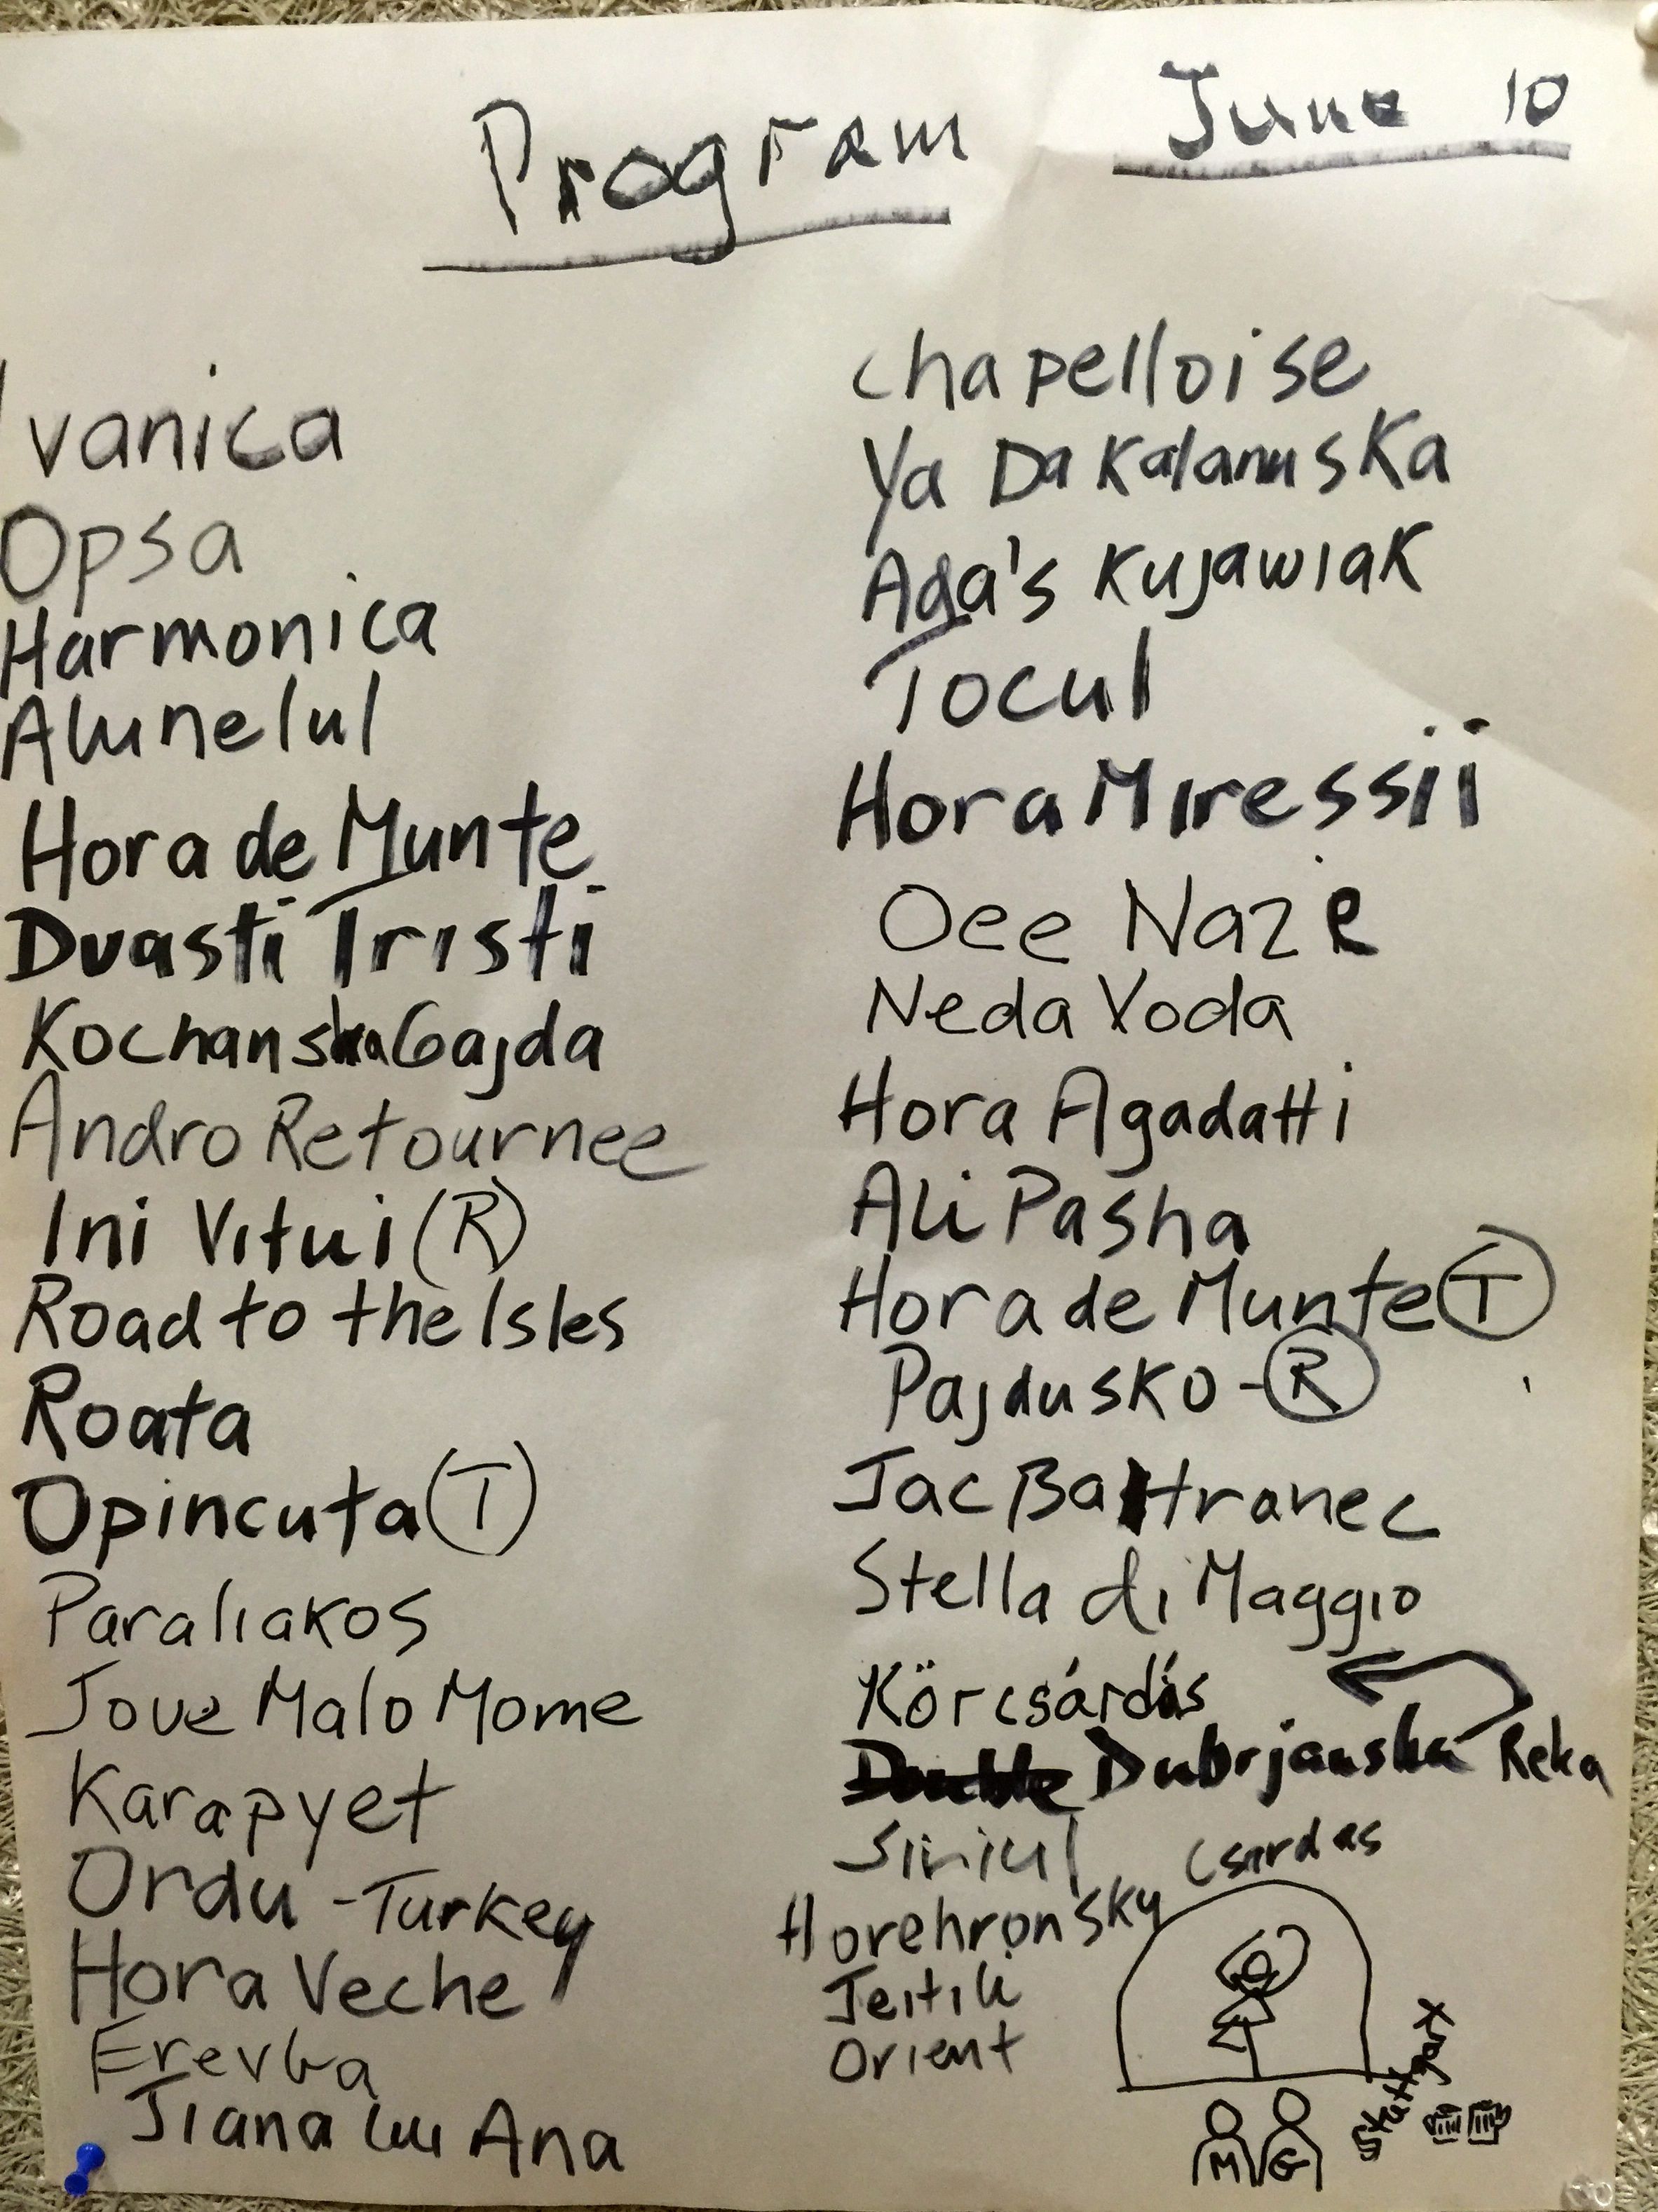 Program June 10
Ivanica
Opsa
Harmonica
Alunelul
Hora de Munte
Duasti Tristi
Kochanska Gajda
Andro Retournee
Ini Vitui (R)
Road to the Isles
Roata
Opincuta (T)
Paraliakos
Jove Malo Mome
Karapyet
Ordu - Turkey
Hora Veche
Erevka
Jiana lui Ana
Chapelloise
Ya Da Kalanuska
Ada's Kujawiak
Tocul
Hora Miressii
Oee Naze
Neda Voda
Hora Agadatti
Ali Pasha
Hora de Munte (T)
Pajdusko - (R)
Jac Battranec
Stella di Maggio
Körcsárdás
Dubrjanska Reka
Siriul
Horehronsky Csardas
Orient
M G